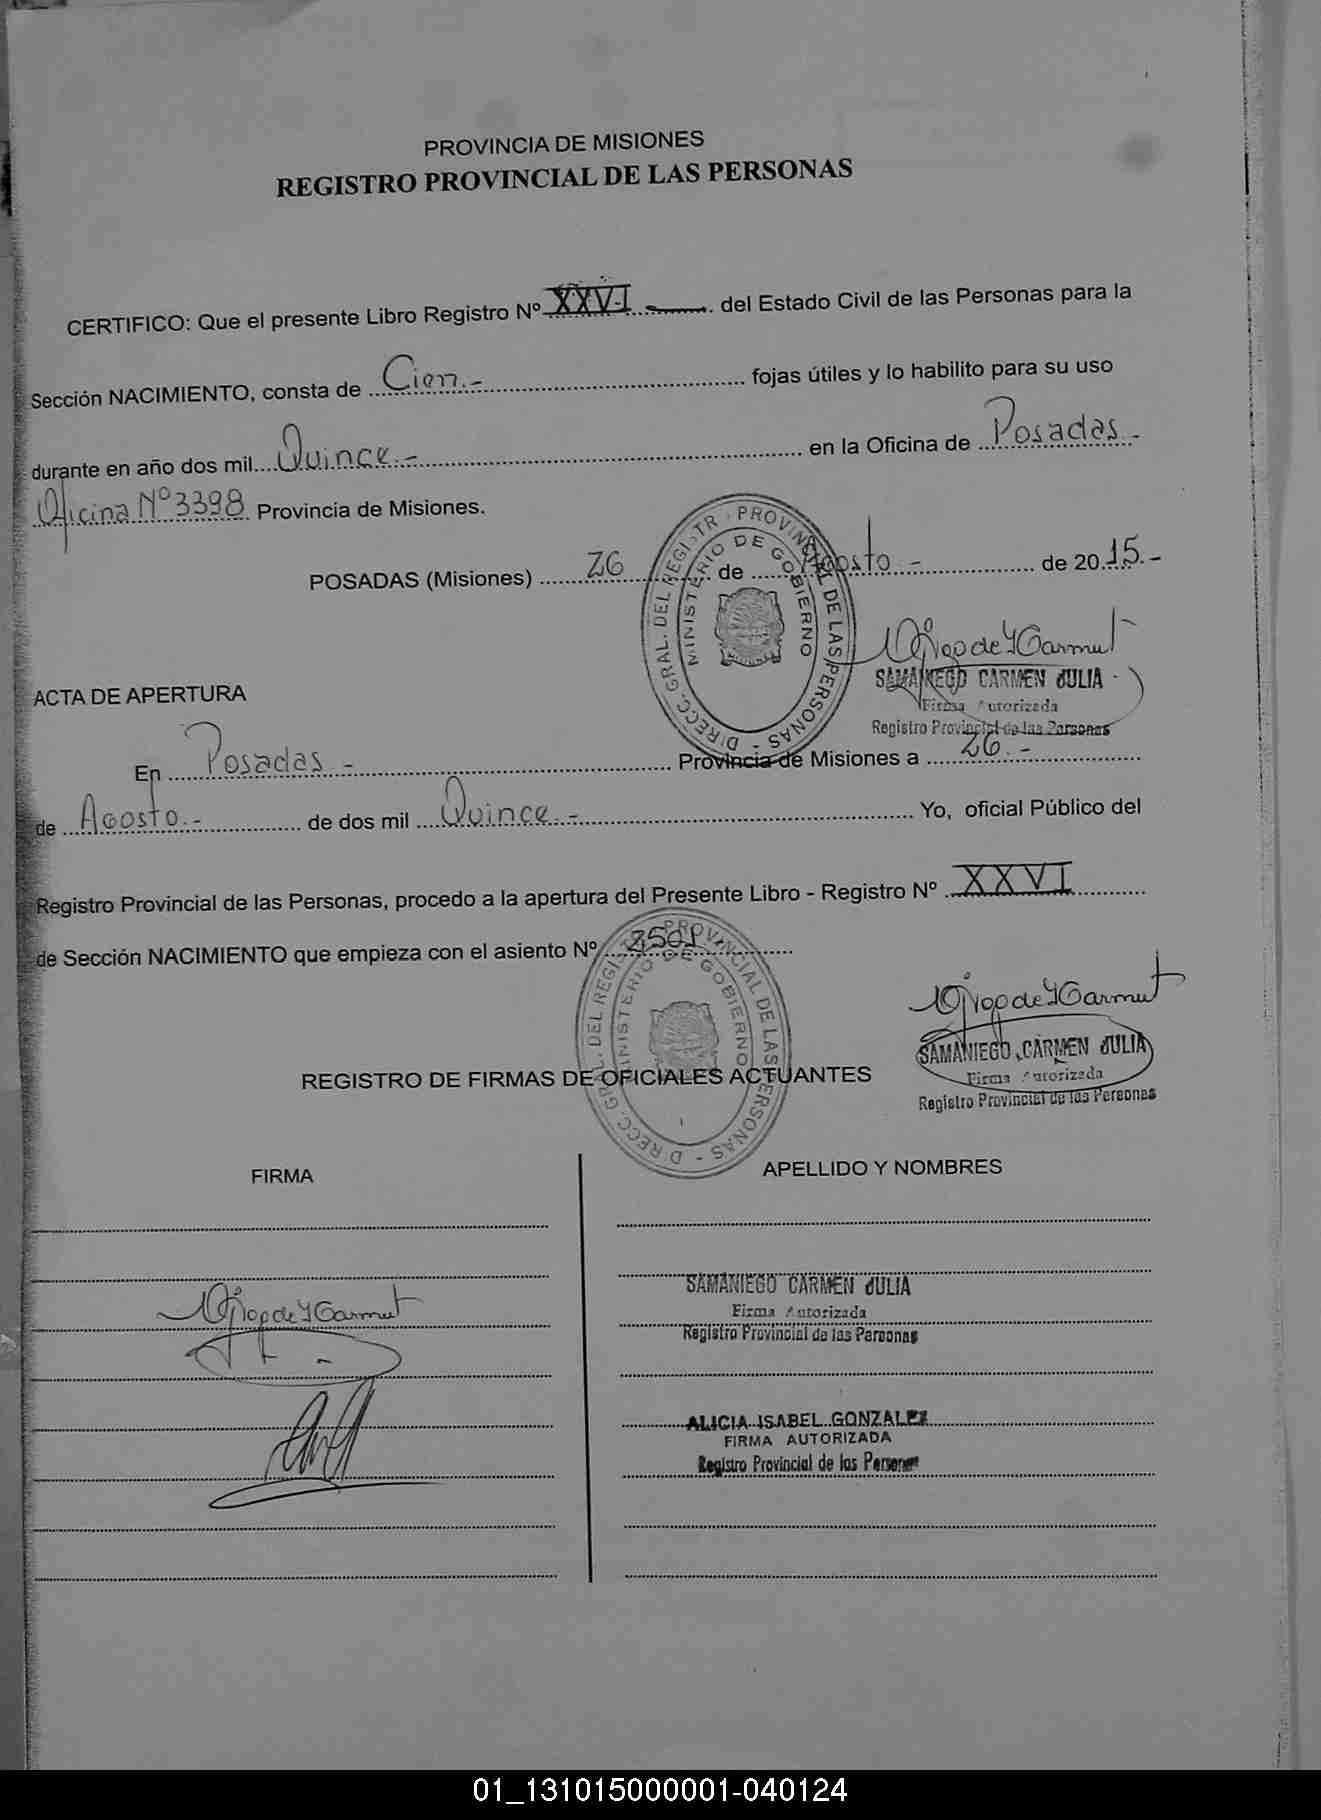 PROVINCIA DE MISIONES
REGISTRO PROVINCIAL DE LAS PERSONAS
CERTIFICO: Que el presente Libro Registro Nº XXVI del Estado Civil de las Personas para la
Sección NACIMIENTO, consta de Cien.- fojas útiles y lo habilito para su uso
durante en año dos mil Quince.- en la Oficina de Posadas-
Oficina Nº 3398 Provincia de Misiones.
POSADAS (Misiones) 26 de Agosto - de 2015.-
DIRECC. GRAL. DEL REGISTR. PROVINCIAL DE LAS PERSONAS -
MINISTERIO DE GOBIERNO
SAMANIEGO CARMEN JULIA
Firma Autorizada
Registro Provincial de las Personas
ACTA DE APERTURA
En Posadas - Provincia de Misiones a 26.-
de Agosto.- de dos mil Quince.- Yo, oficial Público del
Registro Provincial de las Personas, procedo a la apertura del Presente Libro - Registro Nº XXVI
de Sección NACIMIENTO que empieza con el asiento Nº
DIRECC. GRAL. DEL REGISTR. PROVINCIAL DE LAS PERSONAS -
MINISTERIO DE GOBIERNO
SAMANIEGO CARMEN JULIA
Firma Autorizada
Registro Provincial de las Personas
REGISTRO DE FIRMAS DE OFICIALES ACTUANTES
FIRMA APELLIDO Y NOMBRES
SAMANIEGO CARMEN JULIA
Firma Autorizada
Registro Provincial de las Personas
ALICIA ISABEL GONZALEZ
FIRMA AUTORIZADA
Registro Provincial de las Personas
01_131015000001-040124